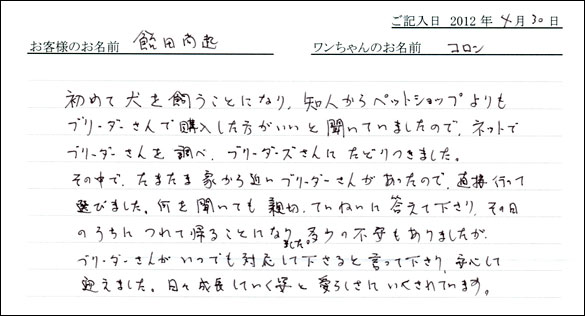 ご記入日 2012 年 4 月 30 日
お客様のお名前 飯田尚起 ワンちゃんのお名前 コロン
初めて犬を飼うことになり、知人からペットショップよりも
ブリーダーさんで購入した方がいいと聞いていましたので、ネットで
ブリーダーさんを調べ、ブリーダーズさんにたどりつきました。
その中で、たまたま家から近いブリーダーさんがあったので、直接行って
選びました。何を聞いても親切、ていねいに答えて下さり、その日
のうちにつれて帰ることになりました。多少の不安もありましたが、
ブリーダーさんがいつでも対応して下さると言って下さり、安心して
迎えました。日々成長していく姿と愛らしさにいやされています。